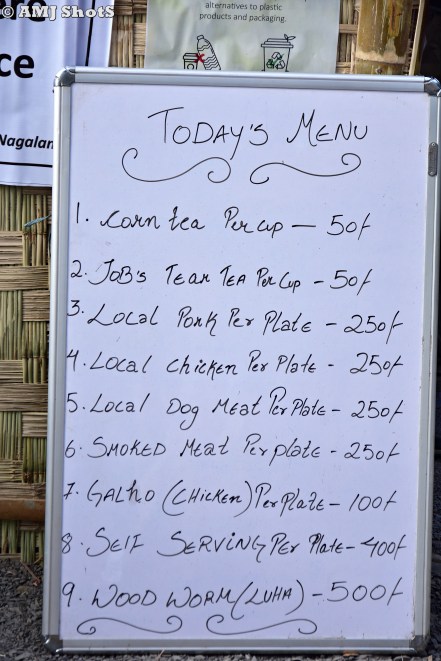 © AMJ ShotS
alternatives to plastic
products and packaging.
ce
Nagalan
TODAY'S MENU
1. Corn tea Per cup — 50/-
2. JOB'S TEAR TEA Per Cup - 50/-
3. LOCAL PORK Per Plate - 250/-
4. LOCAL chicken Per Plate - 250/-
5. LOCAL Dog Meat Per Plate - 250/-
6. SMOKED Meat Per plate - 250/-
7. GALHO (CHICKEN) Per Plate - 100/-
8. SELF SERVING Per Plate - 400/-
9. WOOD WORM (LUHA) - 500/-